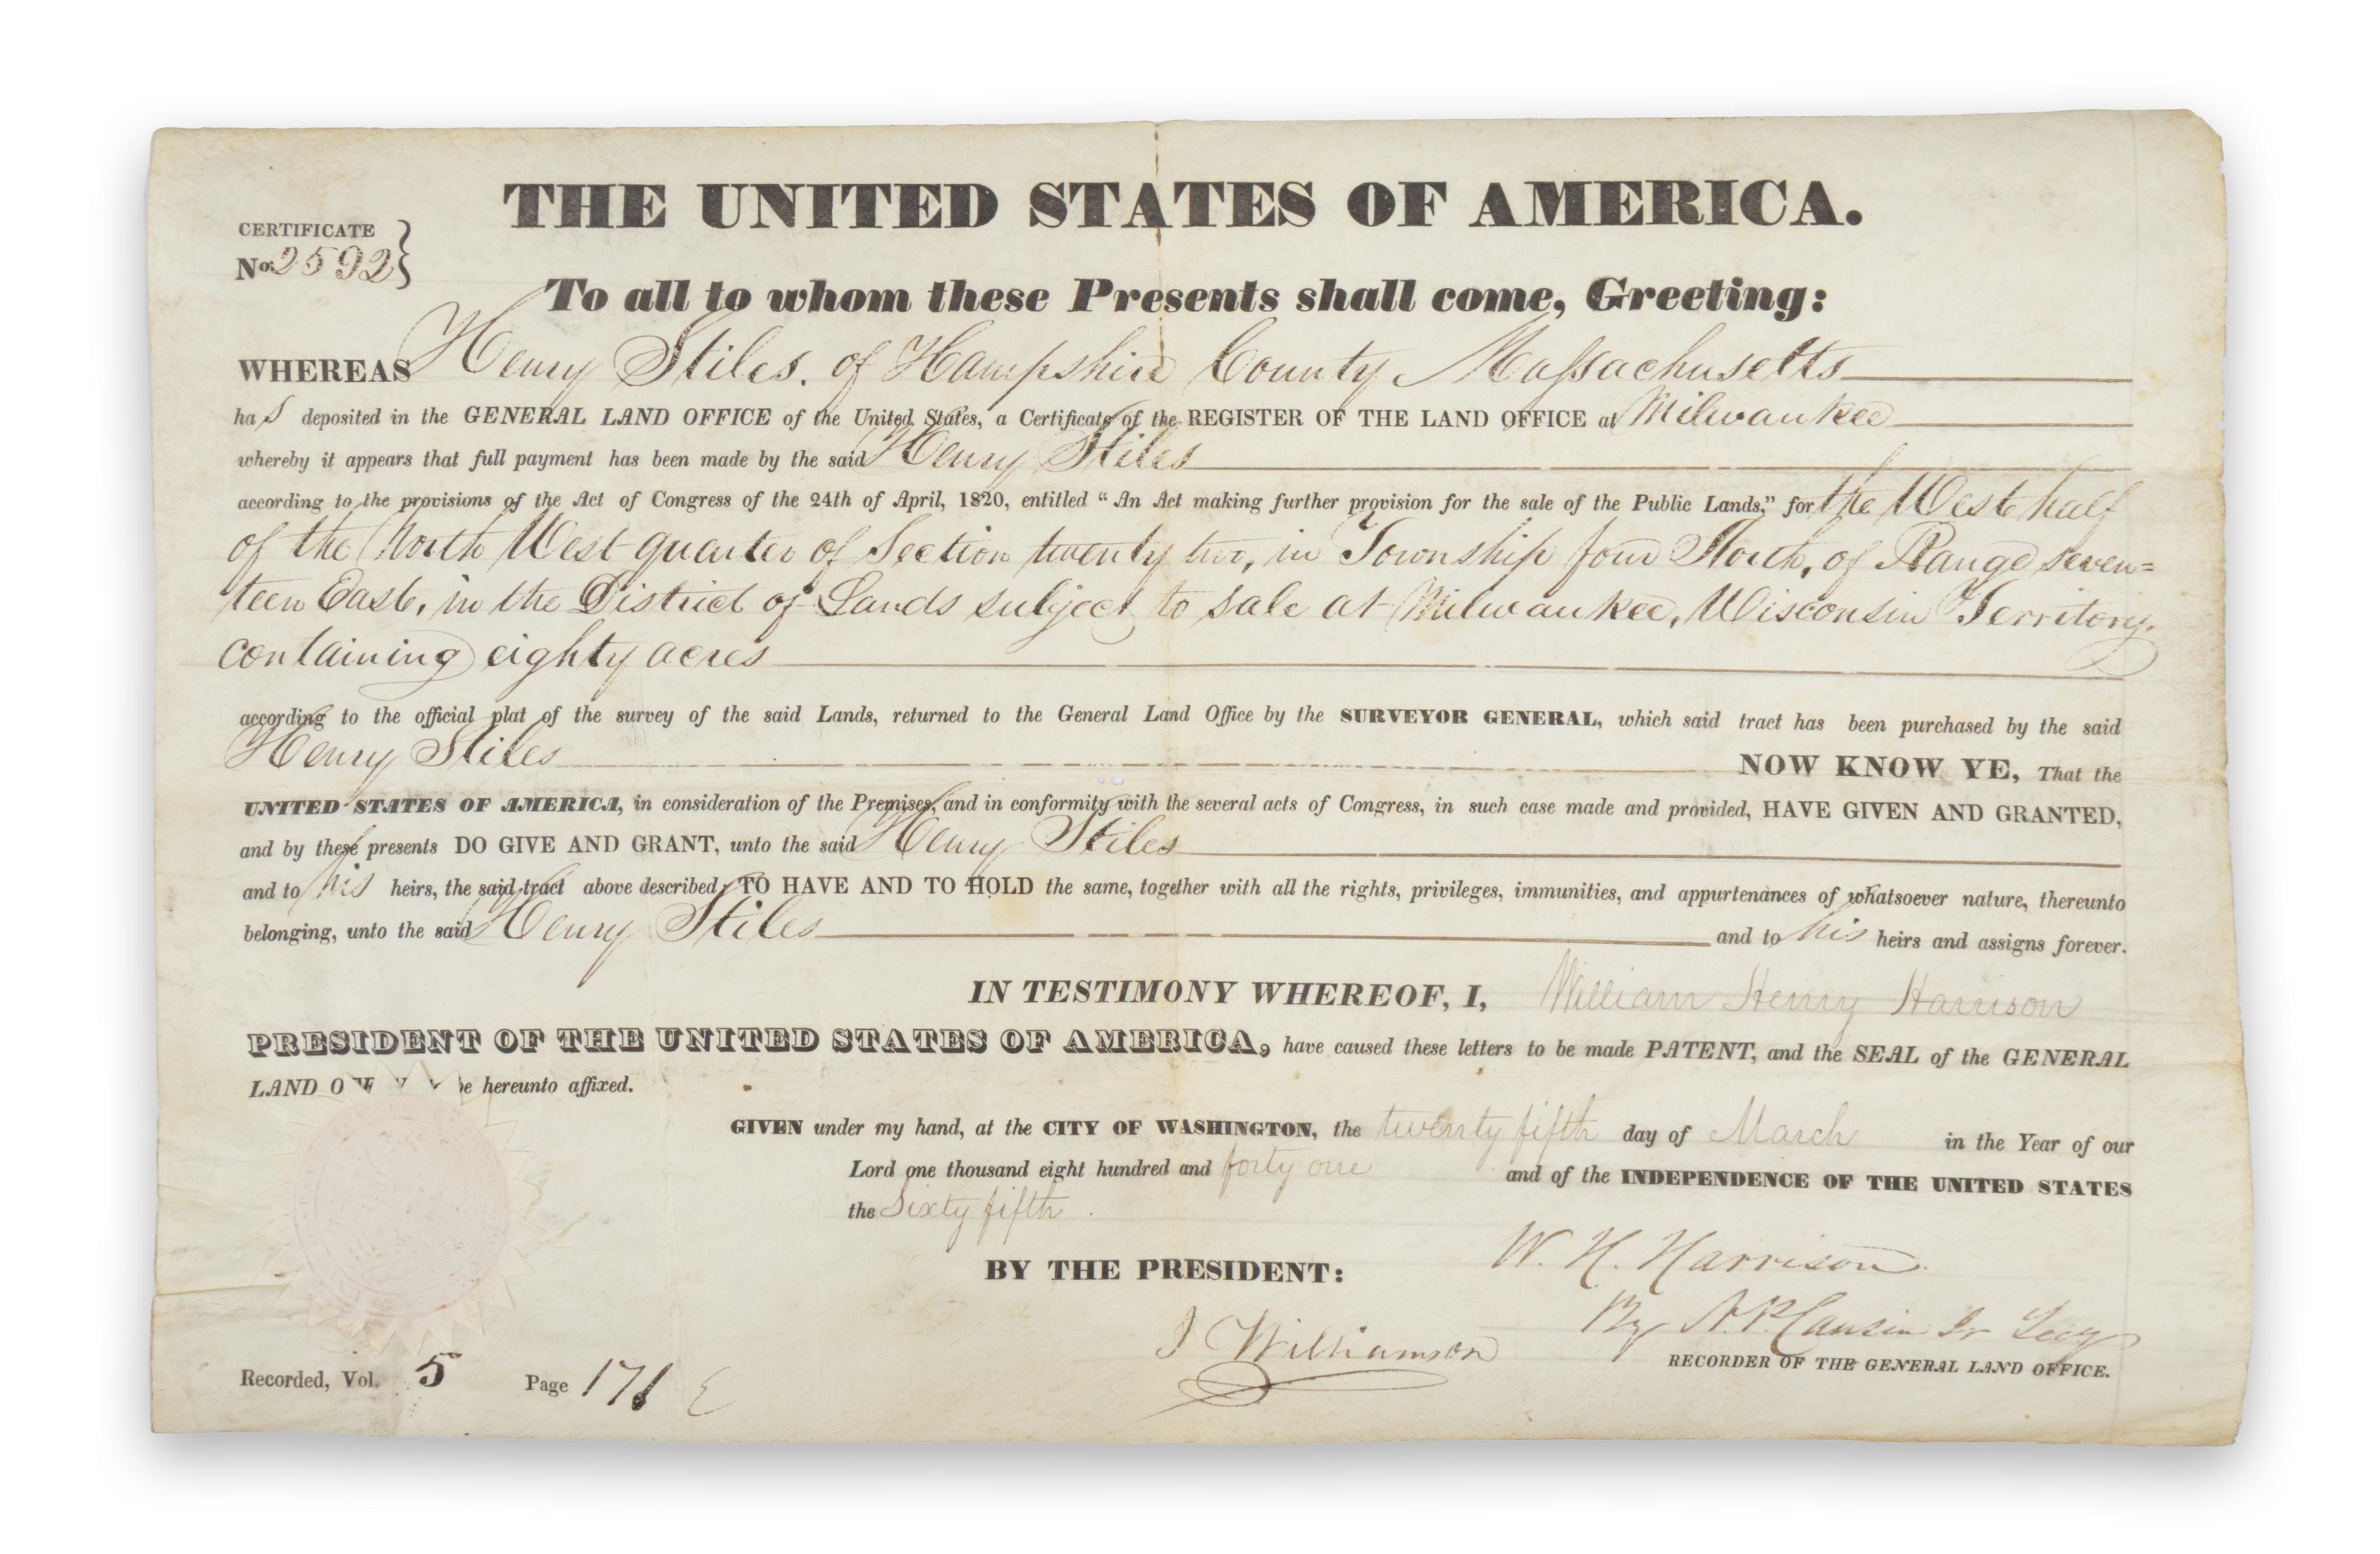 THE UNITED STATES OF AMERICA.
CERTIFICATE
No. 2592
To all to whom these Presents shall come, Greeting:
WHEREAS Henry Stiles. of Hampshire County Massachusetts
has deposited in the GENERAL LAND OFFICE of the United States, a Certificate of the REGISTER OF THE LAND OFFICE at Milwaukee
whereby it appears that full payment has been made by the said Henry Stiles
according to the provisions of the Act of Congress of the 24th of April, 1820, entitled “An Act making further provision for the sale of the Public Lands,” for the West half
of the North West quarter of Section twenty two, in Township four North, of Range seven=
teen East, in the District of Lands subject to sale at Milwaukee, Wisconsin Territory,
containing eighty acres
according to the official plat of the survey of the said Lands, returned to the General Land Office by the SURVEYOR GENERAL, which said tract has been purchased by the said
Henry Stiles NOW KNOW YE, That the
UNITED STATES OF AMERICA, in consideration of the Premises, and in conformity with the several acts of Congress, in such case made and provided, HAVE GIVEN AND GRANTED,
and by these presents DO GIVE AND GRANT, unto the said Henry Stiles
and to his heirs, the said tract above described, TO HAVE AND TO HOLD the same, together with all the rights, privileges, immunities, and appurtenances of whatsoever nature, thereunto
belonging, unto the said Henry Stiles and to his heirs and assigns forever.
IN TESTIMONY WHEREOF, I, William Henry Harrison
PRESIDENT OF THE UNITED STATES OF AMERICA, have caused these letters to be made PATENT, and the SEAL of the GENERAL
LAND be hereunto affixed.
GIVEN under my hand, at the CITY OF WASHINGTON, the twenty fifth day of March in the Year of our
Lord one thousand eight hundred and forty one and of the INDEPENDENCE OF THE UNITED STATES
the Sixty fifth.
BY THE PRESIDENT: W. H. Harrison
By N. P. Causin Jr Secy
J Williamson
RECORDER OF THE GENERAL LAND OFFICE.
Recorded, Vol. 5 Page 171